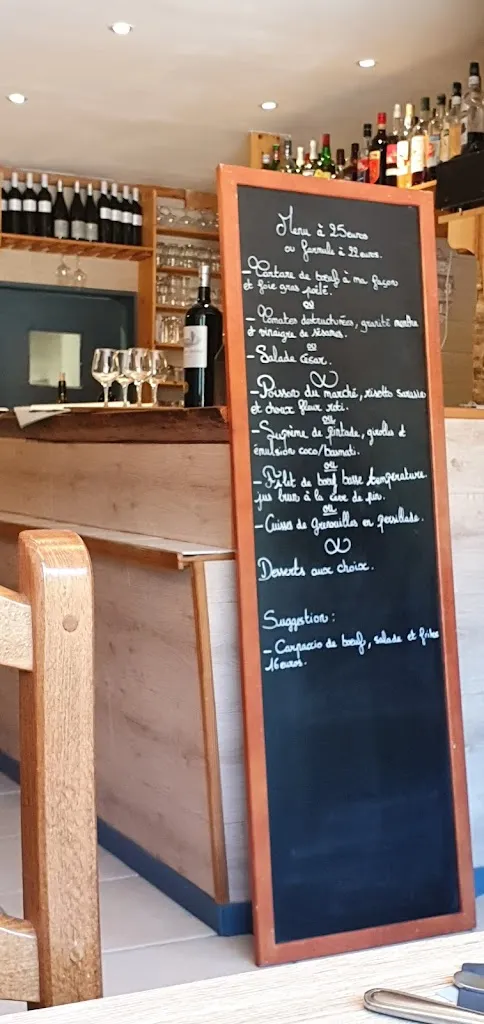 Menu à 25euros
ou formule à 22euros.
- Tartare de bœuf à ma façon
et foie gras poêlé.
ou
- Tomates destructurées, granité menthe
et vinaigre de sésames.
ou
- Salade César.
- Poisson du marché, risotto sarrasin
et choux fleur roti.
ou
- Suprême de pintade, girolles et
émulsion coco/basmati.
ou
- Filet de bœuf basse température.
jus brun à la sève de pin.
ou
- Cuisses de Grenouilles en persillade.
Desserts aux choix.
Suggestion :
- Carpaccio de bœuf, salade et frites
16euros.